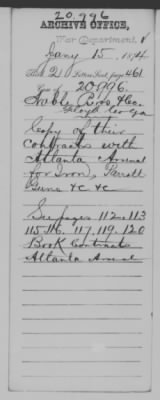 20,796
ARCHIVE OFFICE,
War Department.
Jany 15, 1874
Book 21 Letters Sent, page 461
Case of 20796.
Noble Bros & Co.
Floyd Co Ga
Copy of their
contracts with
Atlanta Arsenal
for Iron, Parrott
Guns &c &c
See pages 112. 113
115. 116. 117. 119. 120
Book Contracts
Atlanta Arsenal